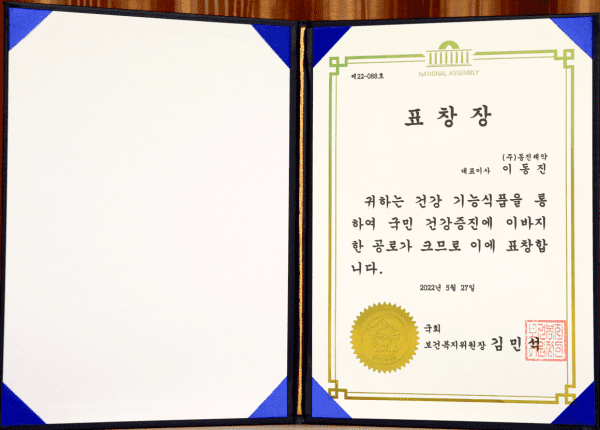 NATIONAL ASSEMBLY
제22-088호
표 창 장
(주)동진제약
대표이사 이 동 진
귀하는 건강 기능식품을 통
하여 국민 건강증진에 이바지
한 공로가 크므로 이에 표창합
니다.
2022년 5월 27일
국회
보건복지위원장 김 민 석